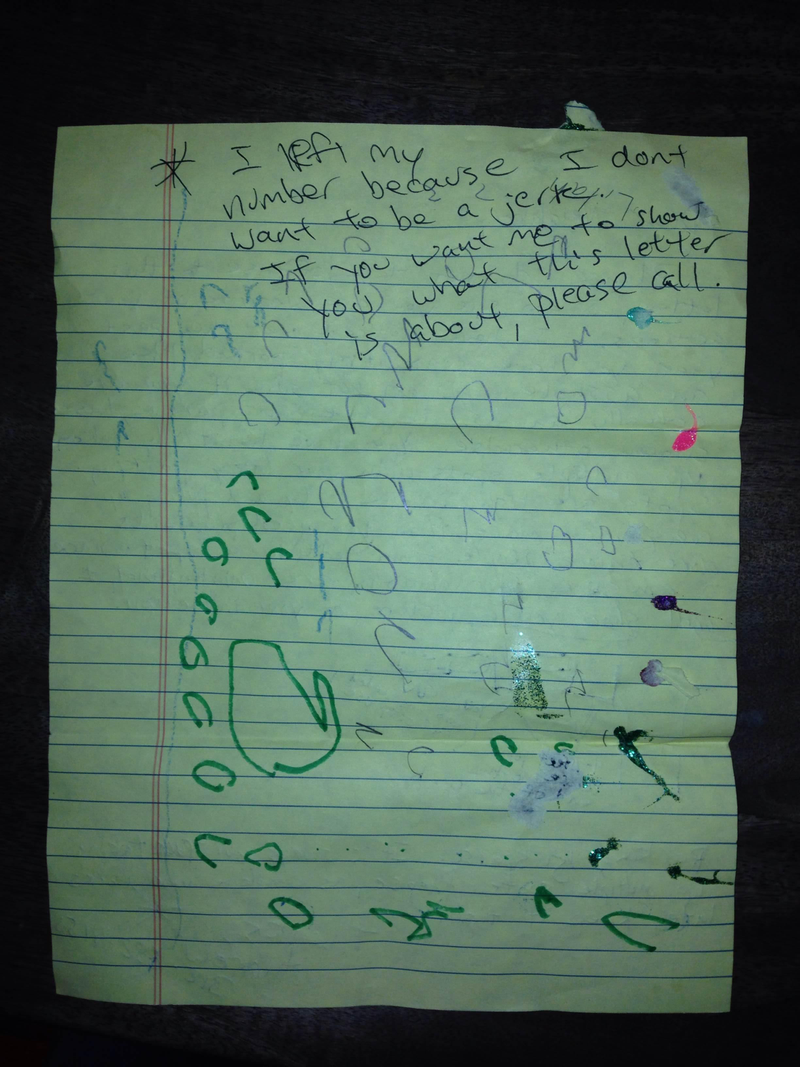 * I left my
number because I dont
want to be a jerk.
If you want me to show
you what this letter
is about, please call.